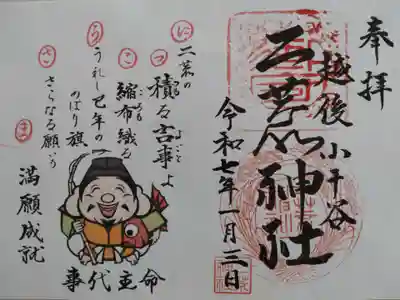 奉拝
越後小千谷
二荒神社
令和七年一月三日
に
二荒の
つ
積る吉事よ
よごと
こ
縮布織る
う
うれし巳年の
のぼり旗
さ
さらなる願い
ま
満願成就
事代主命